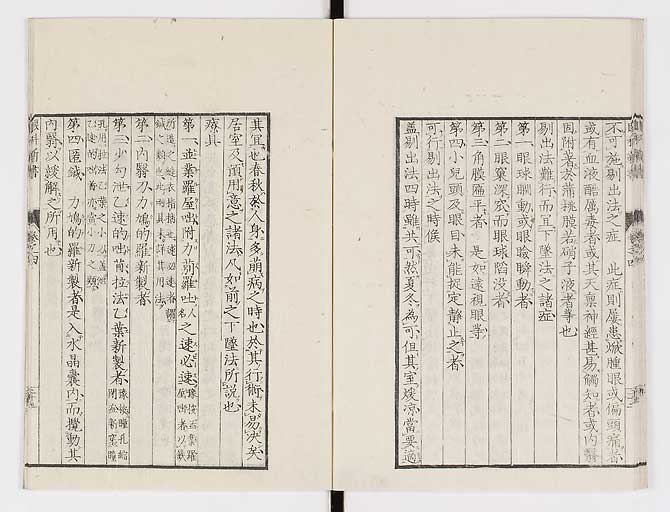 不可施剔出法之症　此症則屢患焮腫眼或偏頭痛者
或有血液酷厲毒者或其天稟神經甚易觸知者或内翳
因附著於蒲桃膜若硝子液者等也
剔出法難行而宜下墜法之諸症
第一眼球瞤動或眼瞼瞬動者
第二眼窠深窕而眼球陷没者
第三角膜匾平者　是如遠視眼等
第四小兒頭及眼目未能捉定靜止之者
可行剔出法之時候
蓋剔出法四時雖共可然夏冬為可但其室煖涼當要適
其宜也春秋於人身多萠病之時也於其行術未易决矣
居室及預用意之諸法八如前之下墜法所説也
療具
第一並葉羅屋咄附力前羅吐人名之速必速
第二内翳刀力鳩的羅新製者
第三少勾泄乙速的咄茴拉法乙葉新製者
第四匿鍼　力鳩的羅新製者是入水晶囊内而攪動其
内翳以緩解之所用也
眼科新書
卷之四